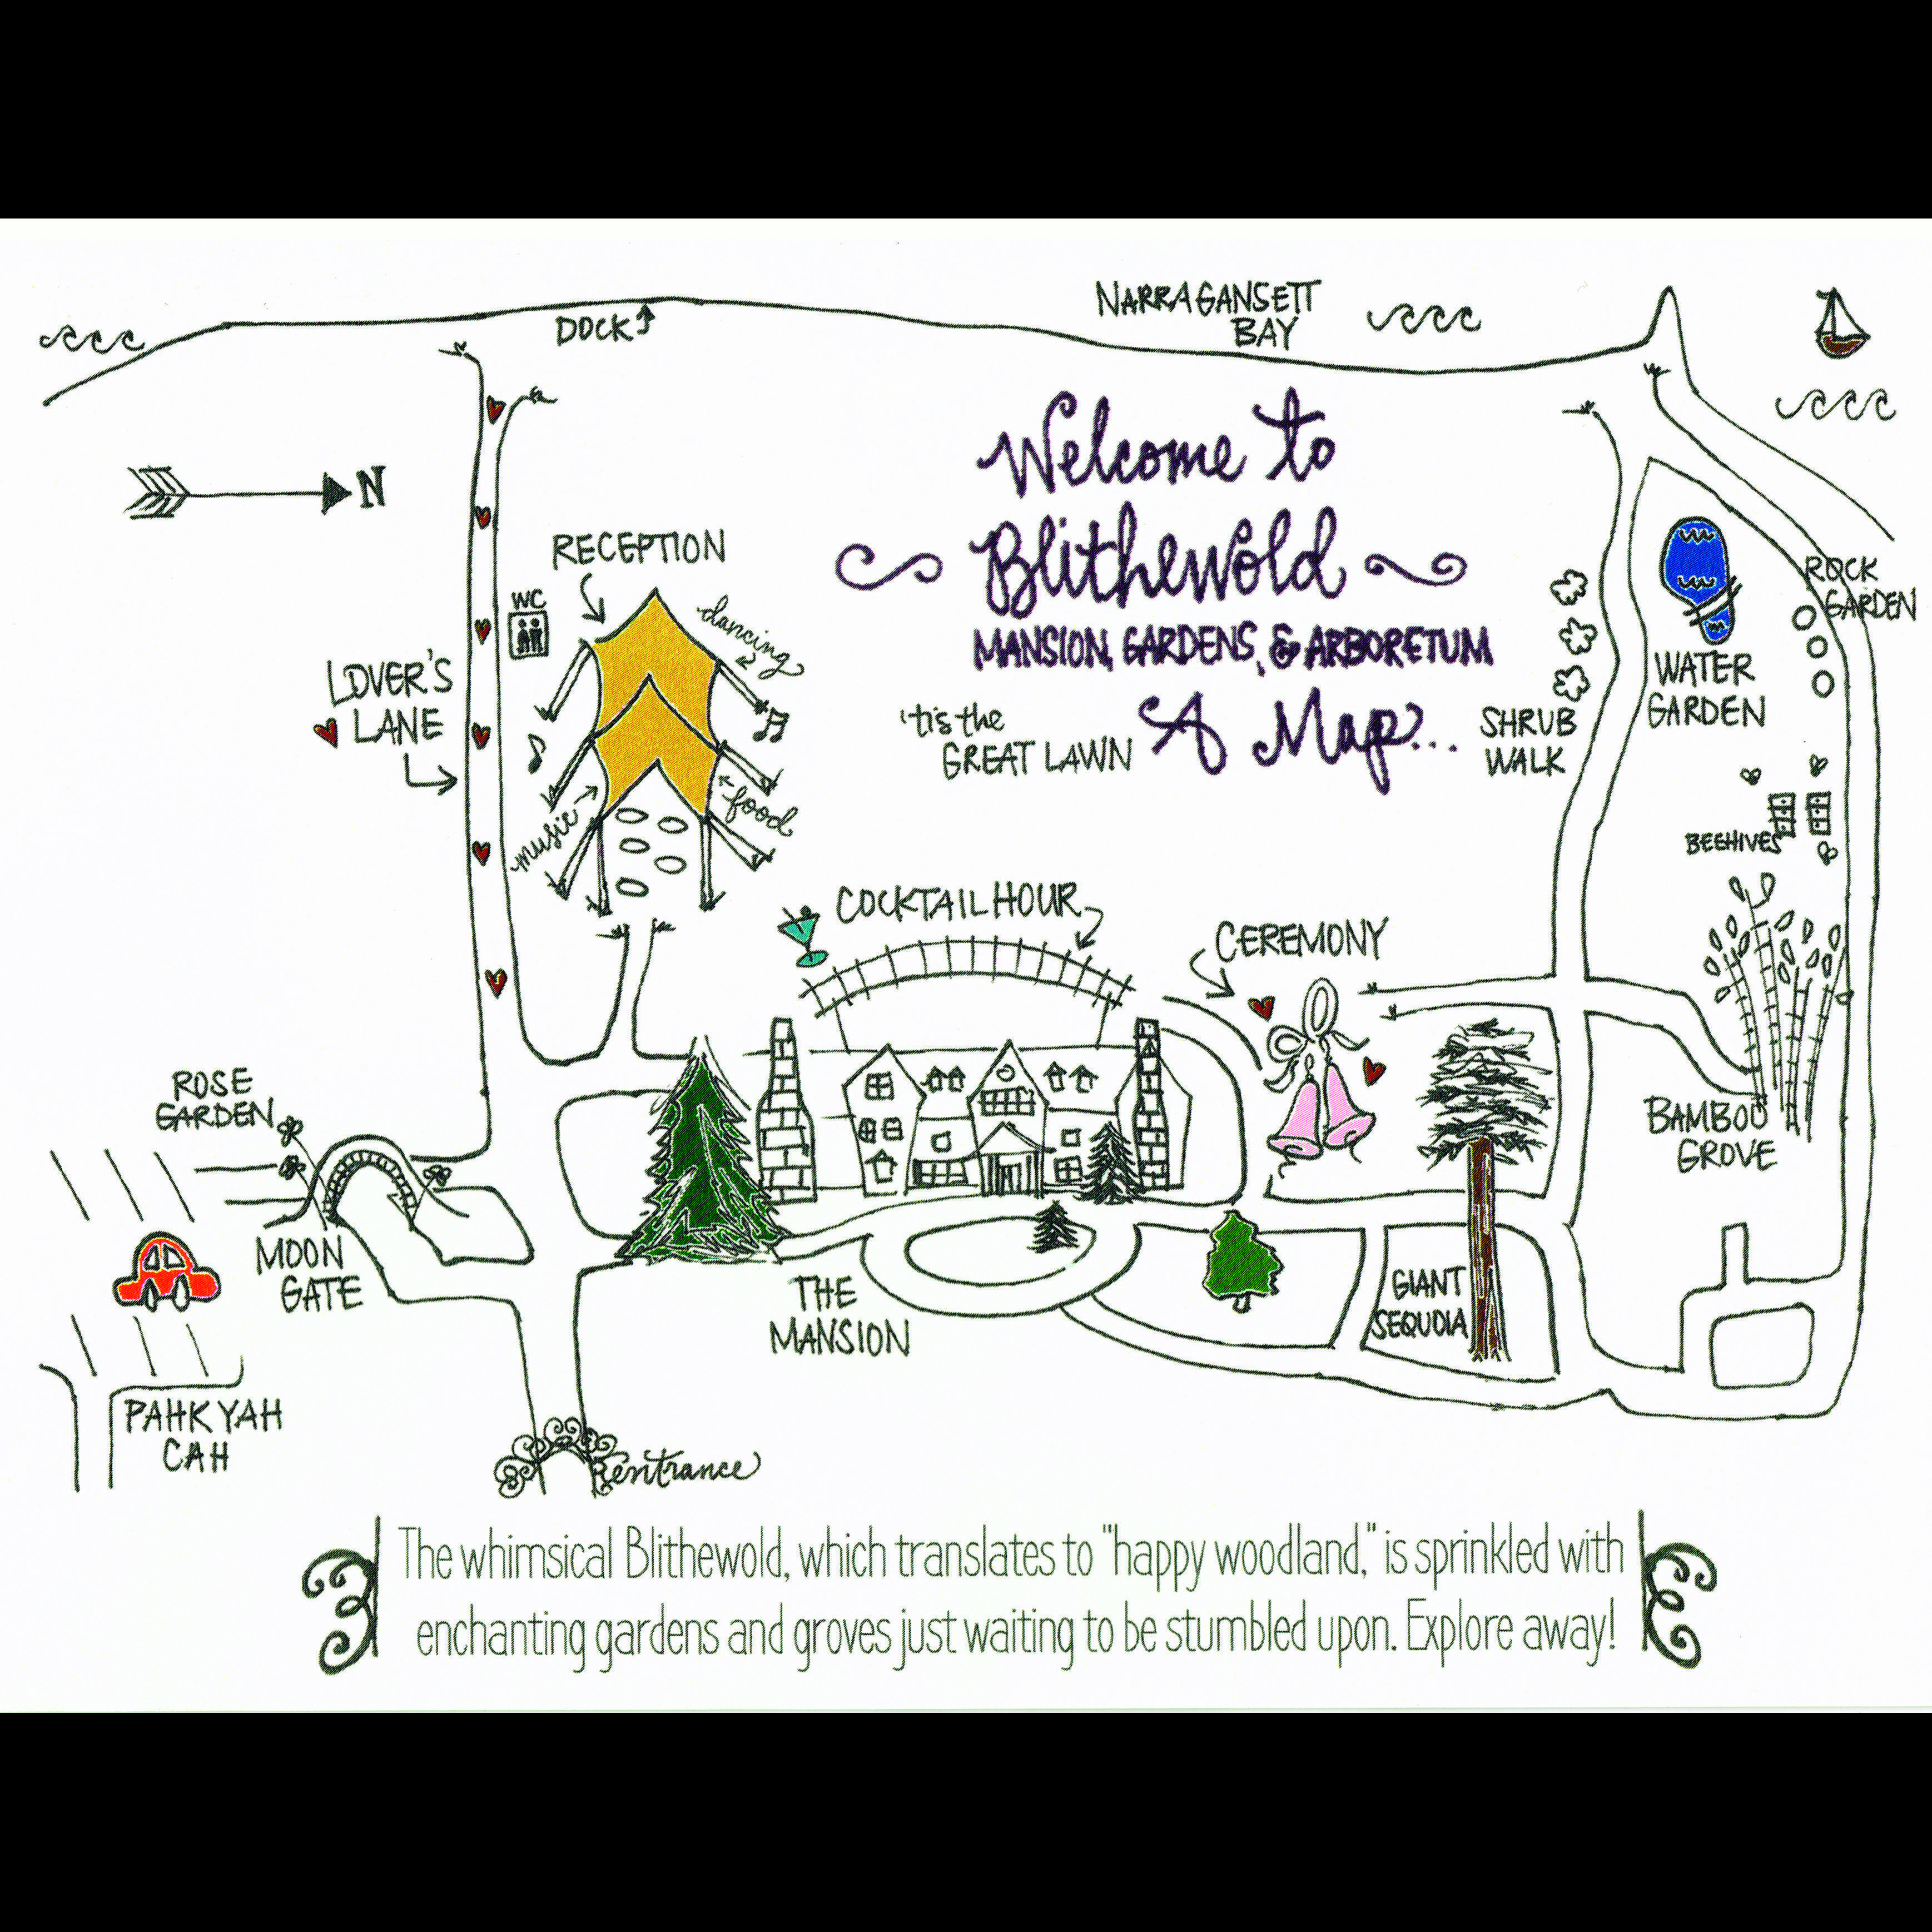 NARRAGANSETT
BAY
DOCK
N
Welcome to
Blithewold
MANSION, GARDENS, & ARBORETUM
A Map...
'tis the
GREAT LAWN
RECEPTION
WC
dancing
music
food
LOVER'S
LANE
SHRUB
WALK
WATER
GARDEN
ROCK
GARDEN
BEEHIVES
COCKTAIL HOUR
CEREMONY
BAMBOO
GROVE
ROSE
GARDEN
MOON
GATE
THE
MANSION
GIANT
SEQUOIA
PAHK YAH
CAH
entrance
The whimsical Blithewold, which translates to "happy woodland," is sprinkled with
enchanting gardens and groves just waiting to be stumbled upon. Explore away!